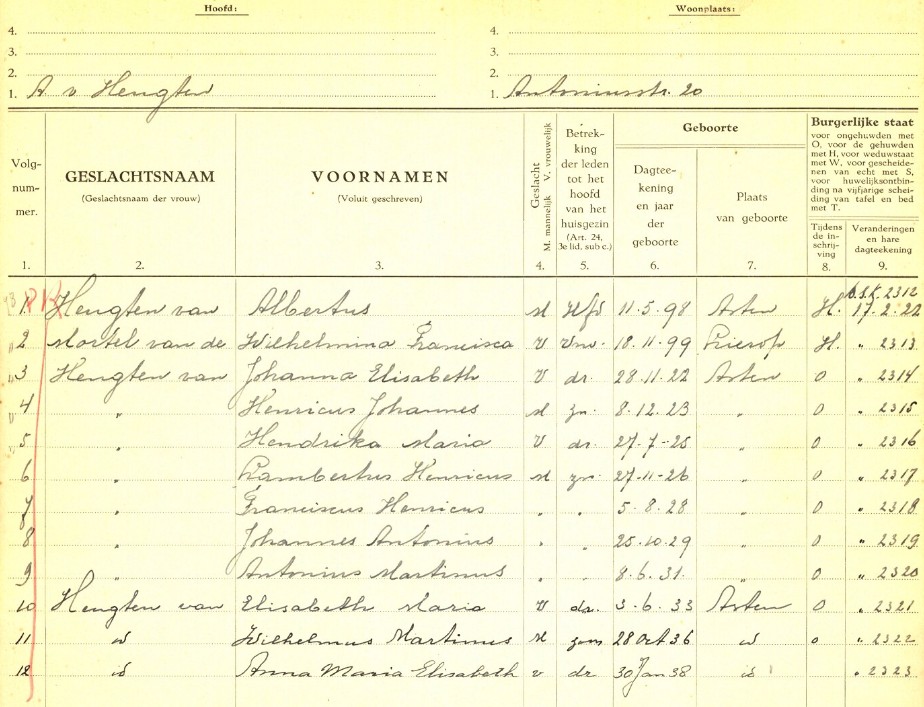 Hoofd: Woonplaats:
4. 4.
3. 3.
2. 2.
1. A v Hengten 1. Antoniusstr. 20
Volg-
num-
mer.
GESLACHTSNAAM
(Geslachtsnaam der vrouw)
VOORNAMEN
(Voluit geschreven)
Geslacht
M. mannelijk V. vrouwelijk
Betrek-
king
der leden
tot het
hoofd
van het
huisgezin
(Art. 24,
3e lid, sub c.)
Geboorte
Dagtee-
kening
en jaar
der
geboorte
Plaats
van geboorte
Burgerlijke staat
voor ongehuwden met
O, voor de gehuwden
met H, voor weduwstaat
met W, voor gescheide-
nen van echt met S,
voor huwelijksontbin-
ding na vijfjarige schei-
ding van tafel en bed
met T.
Tijdens
de in-
schrij-
ving
Veranderingen
en hare
dagteekening
1. 2. 3. 4. 5. 6. 7. 8. 9.
1 Hengten van Albertus M Hfd 11.5.98 Asten H. 2312
17.2.22
2 Mortel van de Wilhelmina Francisca V Vrw. 18.11.99 H. " 2313
3 Hengten van Johanna Elisabeth V dr. 28.11.22 Asten O " 2314
4 " Henricus Johannes M zn. 8.12.23 " O " 2315
5 " Hendrika Maria V dr. 27-7-25 " O " 2316
6 " Lambertus Henricus M zn. 27-11-26 " O " 2317
7 " Franciscus Henricus " " 5.8.28 " O " 2318
8 " Johannes Antonius " " 25.10.29 " O " 2319
9 " Antonius Martinus " " 8.6.31 " O " 2320
10 Hengten van Elisabeth Maria V dr. 3.6.33 Asten O " 2321
11 id Wilhelmus Martinus M zoon 28 Oct 36 id o " 2322
12 id Anna Maria Elisabeth v dr 30 Jan 38 id " 2323